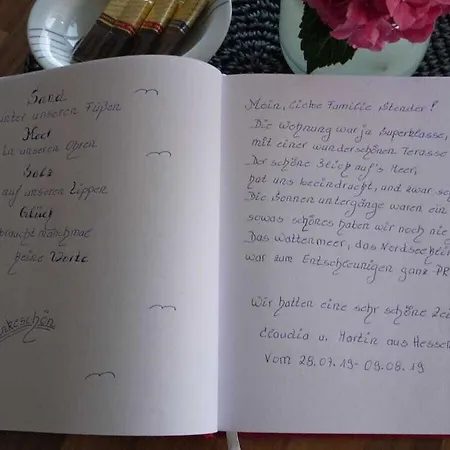 Sand
unter unseren Füßen
Meer
in unseren Ohren
Salz
auf unseren Lippen
Glück
braucht manchmal
keine Worte
Dankeschön
Moin, liebe Familie Stender!
Die Wohnung war ja Superklasse,
mit einer wunderschönen Terasse
Der schöne Blick auf's Meer,
hat uns beeindruckt, und zwar
Die Sonnen untergänge waren ein
sowas schönes haben wir noch nie
Das Wattenmeer, das Nordseeheil
war zum Entschleunigen ganz
Wir hatten eine sehr schöne Zei
Claudia u. Martin aus Hessen
Vom 28.07.19- 09.08.19